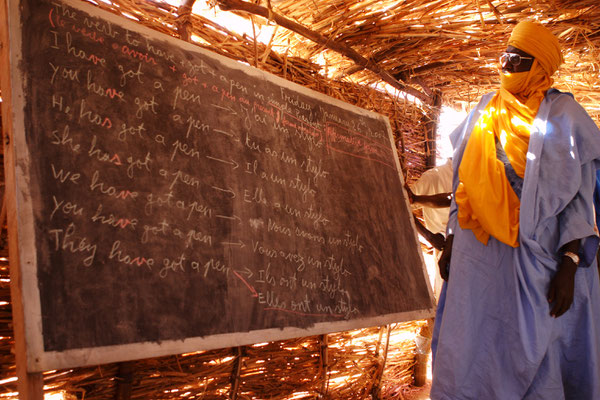 The verb to have got a pen
I have got a pen → J'ai un stylo
You have got a pen → tu as un stylo
He has got a pen → Il a un stylo
She has got a pen → Elle a un stylo
We have got a pen → Nous avons un stylo
You have got a pen → Vous avez un stylo
They have got a pen → Ils ont un stylo
→ Elles ont un stylo